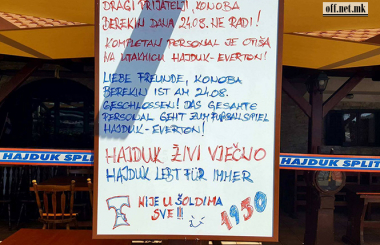 off.net.mk
DRAGI PRIJATELJI, KONOBA
BEREKIN DANA 24.08. NE RADI!
KOMPLETAN PERSONAL JE OTIŠA
NA UTAKMICU HAJDUK-EVERTON!
LIEBE FREUNDE, KONOBA
BEREKIN IST AM 24.08.
GESCHLOSSEN! DAS GESAMTE
PERSONAL GEHT ZUM FUßBALLSPIEL
HAJDUK-EVERTON!
HAJDUK ŽIVI VJEČNO
HAJDUK LEBT FÜR IMMER
HAJDUK SPLIT
HAJDUK SPLIT
NIJE U ŠOLDIMA
SVE!!
1950